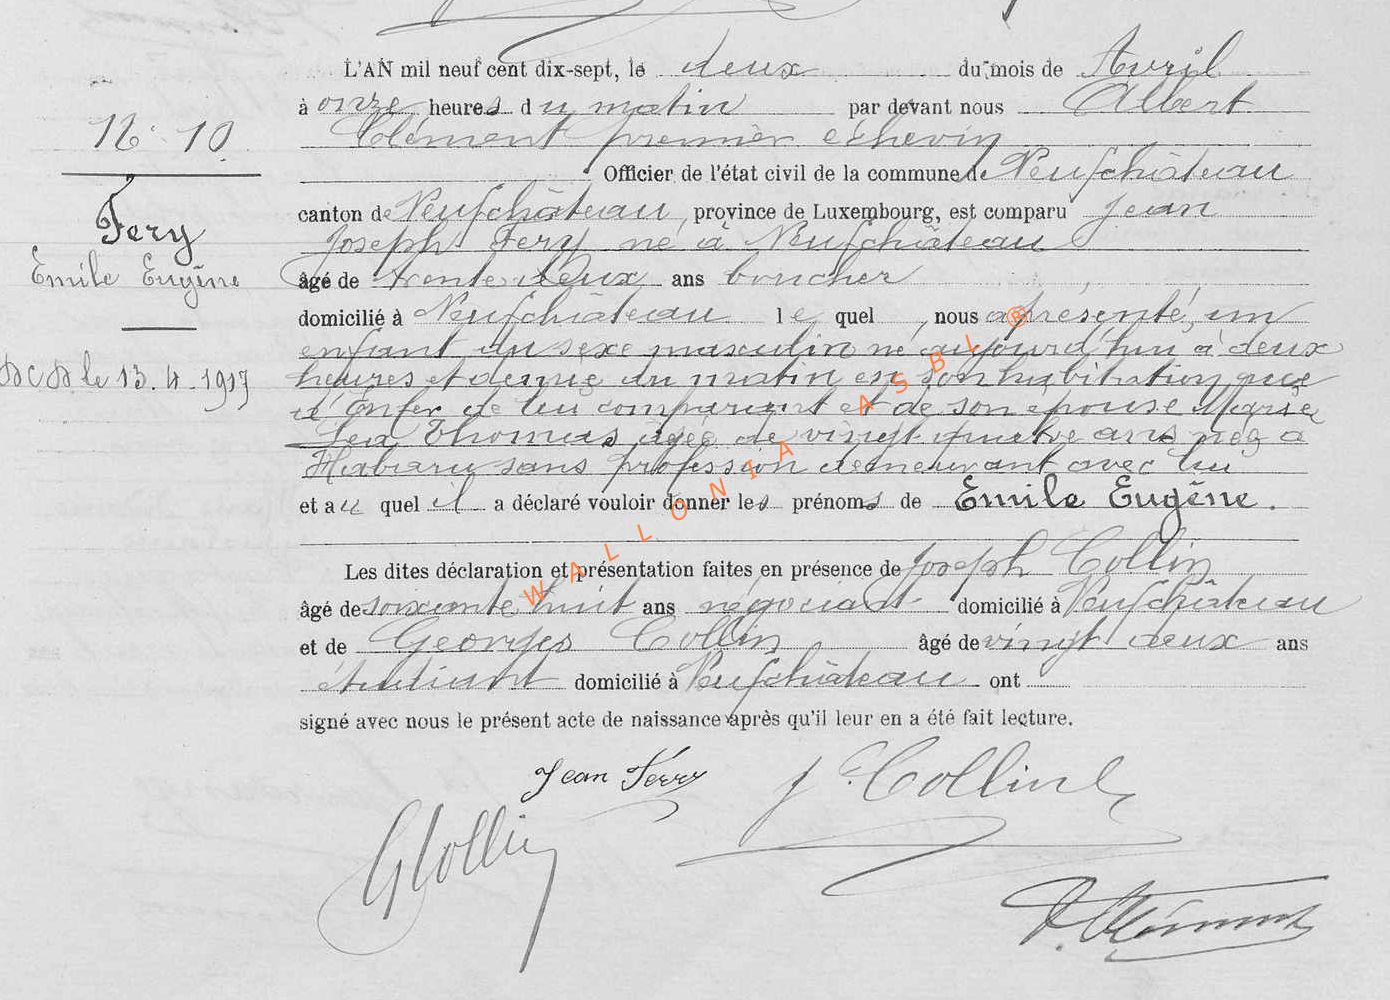 L'AN mil neuf cent dix-sept, le deux du mois de Avril
à onze heures du matin par devant nous Albert
Clément premier échevin
N° 10.
Officier de l'état civil de la commune de Neufchâteau
canton de Neufchâteau, province de Luxembourg, est comparu Jean
Fery
Joseph Fery né à Neufchâteau
Emile Eugène
âgé de trente deux ans boucher
domicilié à Neufchâteau lequel, nous a présenté, un
enfant du sexe masculin né aujourd'hui à deux
Dcd le 13.4.1917
heures et demie du matin en son habitation, rue
d'Enfer de lui comparant et de son épouse Marie
Léa Thomas âgée de vingt-quatre ans née à
Habaru sans profession demeurant avec lui
et au quel il a déclaré vouloir donner les prénoms de Emile Eugène.
Les dites déclaration et présentation faites en présence de Joseph Collin
âgé de soixante huit ans négociant domicilié à Neufchâteau
et de Georges Collin âgé de vingt deux ans
étudiant domicilié à Neufchâteau ont
signé avec nous le présent acte de naissance après qu'il leur en a été fait lecture.
Jean Féry
Jh Collin
G Collin
A. Clément
WALLONIA ASBL ®